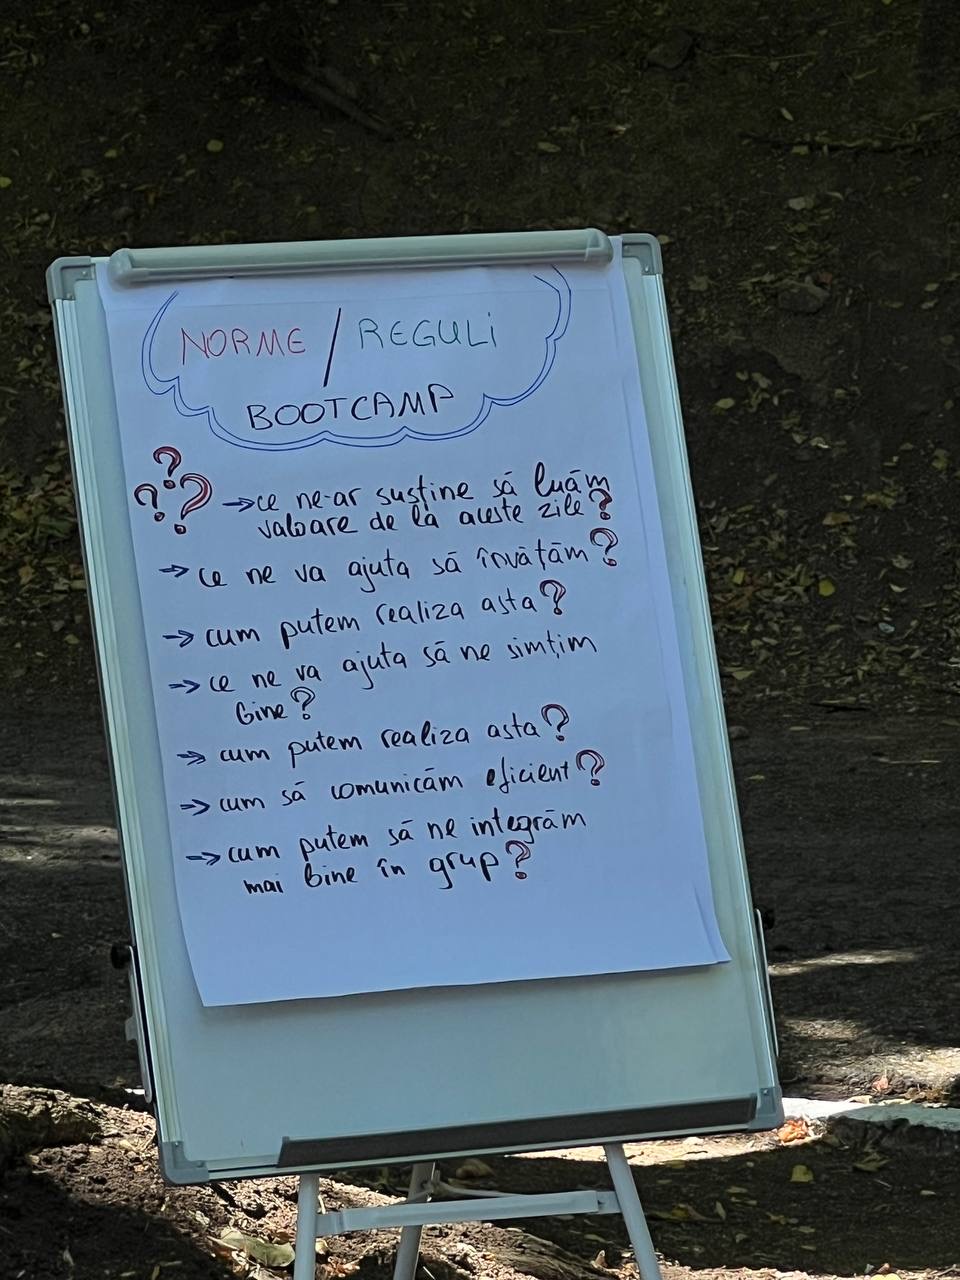 NORME / REGULI
BOOTCAMP
???
→ ce ne-ar susține să luăm
valoare de la aceste zile?
→ ce ne va ajuta să învățăm?
→ cum putem realiza asta?
→ ce ne va ajuta să ne simțim
bine?
→ cum putem realiza asta?
→ cum să comunicăm eficient?
→ cum putem să ne integrăm
mai bine în grup?